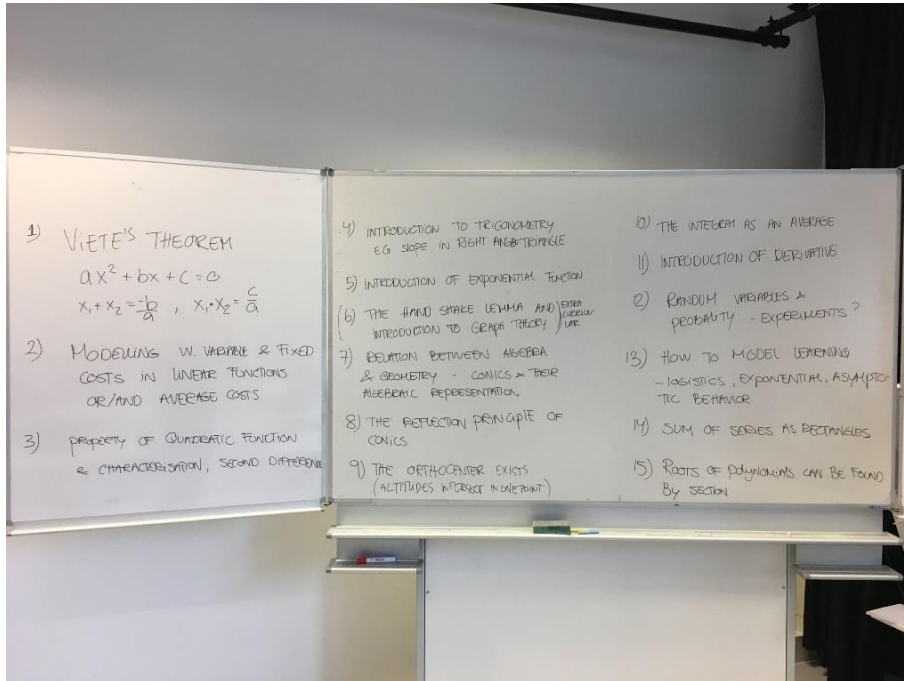 1) VIETE'S THEOREM
ax² + bx + c = 0
x₁ + x₂ = -b/a , x₁ · x₂ = c/a
2) MODELLING W. VARIABLE & FIXED
COSTS IN LINEAR FUNCTIONS
OR/AND AVERAGE COSTS
3) PROPERTY OF QUADRATIC FUNCTION
& CHARACTERISATION, SECOND DIFFERENCE
4) INTRODUCTION TO TRIGONOMETRY
EG SLOPE IN RIGHT ANGLE TRIANGLE
5) INTRODUCTION OF EXPONENTIAL FUNCTION
(6) THE HAND SHAKE LEMMA AND
INTRODUCTION TO GRAPH THEORY)
EXTRA
CURRICU
LAR
7) RELATION BETWEEN ALGEBRA
& GEOMETRY - CONICS & THEIR
ALGEBRAIC REPRESENTATION
8) THE REFLECTION PRINCIPLE OF
CONICS
9) THE ORTHOCENTER EXISTS
(ALTITUDES INTERSECT IN ONE POINT)
10) THE INTEGRAL AS AN AVERAGE
11) INTRODUCTION OF DERIVATIVE
12) RANDOM VARIABLES &
PROBALITY - EXPERIMENTS?
13) HOW TO MODEL LEARNING
- LOGISTICS, EXPONENTIAL, ASYMPTO-
TIC BEHAVIOR
14) SUM OF SERIES AS RECTANGLES
15) ROOTS OF POLYNOMIALS CAN BE FOUND
BY SECTION